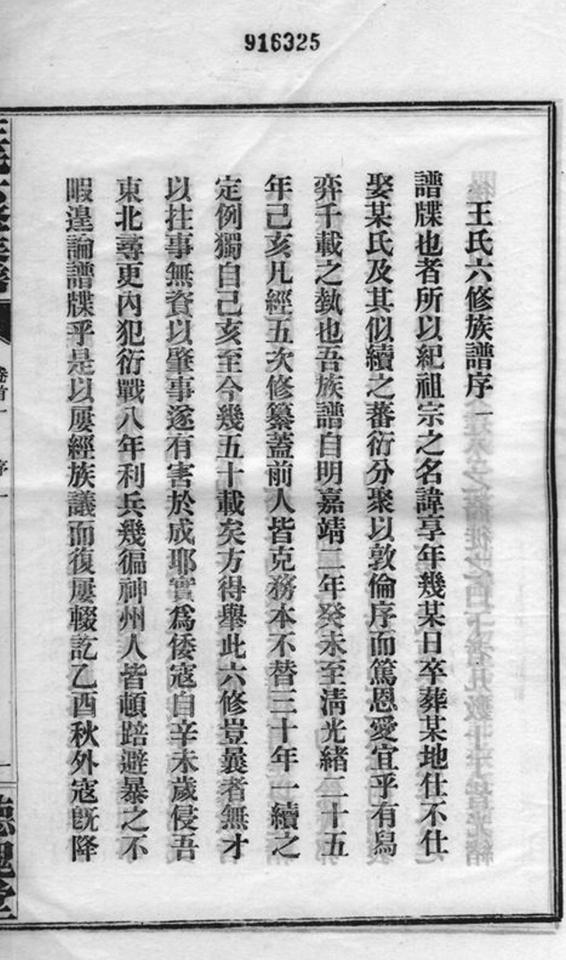 916325
王氏六修族譜序一
譜牒也者所以紀祖宗之名諱享年幾某日卒葬某地仕不仕
娶某氏及其似續之蕃衍分聚以敦倫序而篤恩愛宜乎有舄
弈千載之埶也吾族譜自明嘉靖二年癸未至清光緒二十五
年己亥凡經五次修纂蓋前人皆克務本不替三十年一續之
定例獨自己亥至今幾五十載矣方得舉此六修豈曩者無才
以拄事無資以肇事遂有害於成耶實爲倭寇自辛未歲侵吾
東北尋更內犯衍戰八年利兵幾徧神州人皆頓踣避暴之不
暇遑論譜牒乎是以屢經族議而復屢輟訖乙酉秋外寇旣降
卷首一
序
一